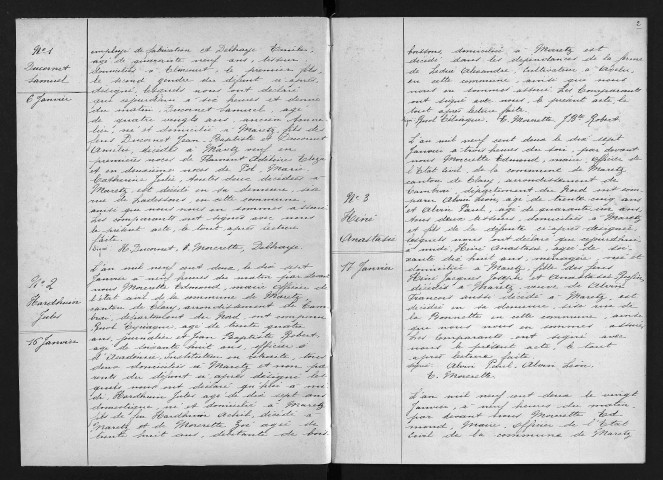 N° 1
Ducornet
Samuel
6 Janvier
employé de fabrication et Delhaye Emilien,
âgé de cinquante neuf ans, tisseur
domiciliés à Elincourt, le premier fils,
le second gendre du défunt ci après
désigné, lesquels nous ont déclaré
que aujourd'hui à six heures et demie
du matin Ducornet Samuel, âgé
de quatre vingts ans, ancien
né et domicilié à Maretz, fils de
feus Ducornet Jean Baptiste et Ducornet
Amélie, décédés à Maretz veuf en
premières noces de Flament
et en deuxièmes noces de Pol Marie
Catherine Julie, toutes deux décédées à
Maretz est décédé en sa demeure, sise
rue de en cette commune,
ainsi que nous nous en sommes assuré
Les comparants ont signé avec nous
le présent acte, le tout après lecture
faite.
Signé H. Ducornet, E. Morcrette, Delhaye.
N° 2
Hardhuin
Jules
16 Janvier
L'an mil neuf cent deux, le dix sept
Janvier à neuf heures du matin par devant
nous Morcrette Edmond, maire officier de
l'état civil de la commune de Maretz
canton de Clary, arrondissement de Cam-
brai, département du Nord ont comparu
âgé de trente quatre
ans, et Jean Baptiste Robert
âgé de soixante huit ans, officier
d'Académie, instituteur en retraite, tous
deux domiciliés à Maretz et non pa-
rents du défunt ci après désigné les-
quels nous ont déclaré qu'hier à mi-
di Hardhuin Jules âgé de dix sept ans
domestique, né et domicilié à Maretz
fils de feu Hardhuin Achille, décédé à
Maretz et de Morcrette Zoé âgée de
trente huit ans,
2
domiciliée à Maretz est
décédé dans les dépendances de la ferme
de Ledieu Alexandre, cultivateur à
en cette commune, ainsi que nous
nous en sommes assuré. Les comparants
ont signé avec nous le présent acte, le
tout après lecture faite.
E. Morcrette J. Bte Robert.
N° 3
Héné
Anastasie
17 Janvier
L'an mil neuf cent deux le dix sept
Janvier à trois heures du soir, par devant
nous Morcrette Edmond, maire, officier de
l'Etat Civil de la commune de Maretz
canton de Clary, arrondissement de
Cambrai département du Nord ont com-
paru Alvin Léon, âgé de trente cinq ans
et Alvin Paul, âgé de quarante six ans
tous deux tisseurs domiciliés à Maretz
et fils de la défunte ci après désignée,
lesquels nous ont déclaré que aujourd'hui
à midi Héné Anastasie âgée de soi-
xante dix huit ans, ménagère, née et
domiciliée à Maretz, fille des feus
Héné Jacques Joseph et Anastasie
décédés à Maretz, veuve de Alvin
François aussi décédé à Maretz, est
décédée en sa demeure sise rue de
la Bonnette en cette commune, ainsi
que nous nous en sommes assuré,
Les comparants ont signé avec
nous le présent acte, le tout
après lecture faite.
Signé Alvin Paul. Alvin Léon.
E. Morcrette.
L'an mil neuf cent deux le vingt
Janvier, à neuf heures du matin,
par devant nous Morcrette Ed-
mond, Maire, Officier de l'Etat
Civil de la commune de Maretz